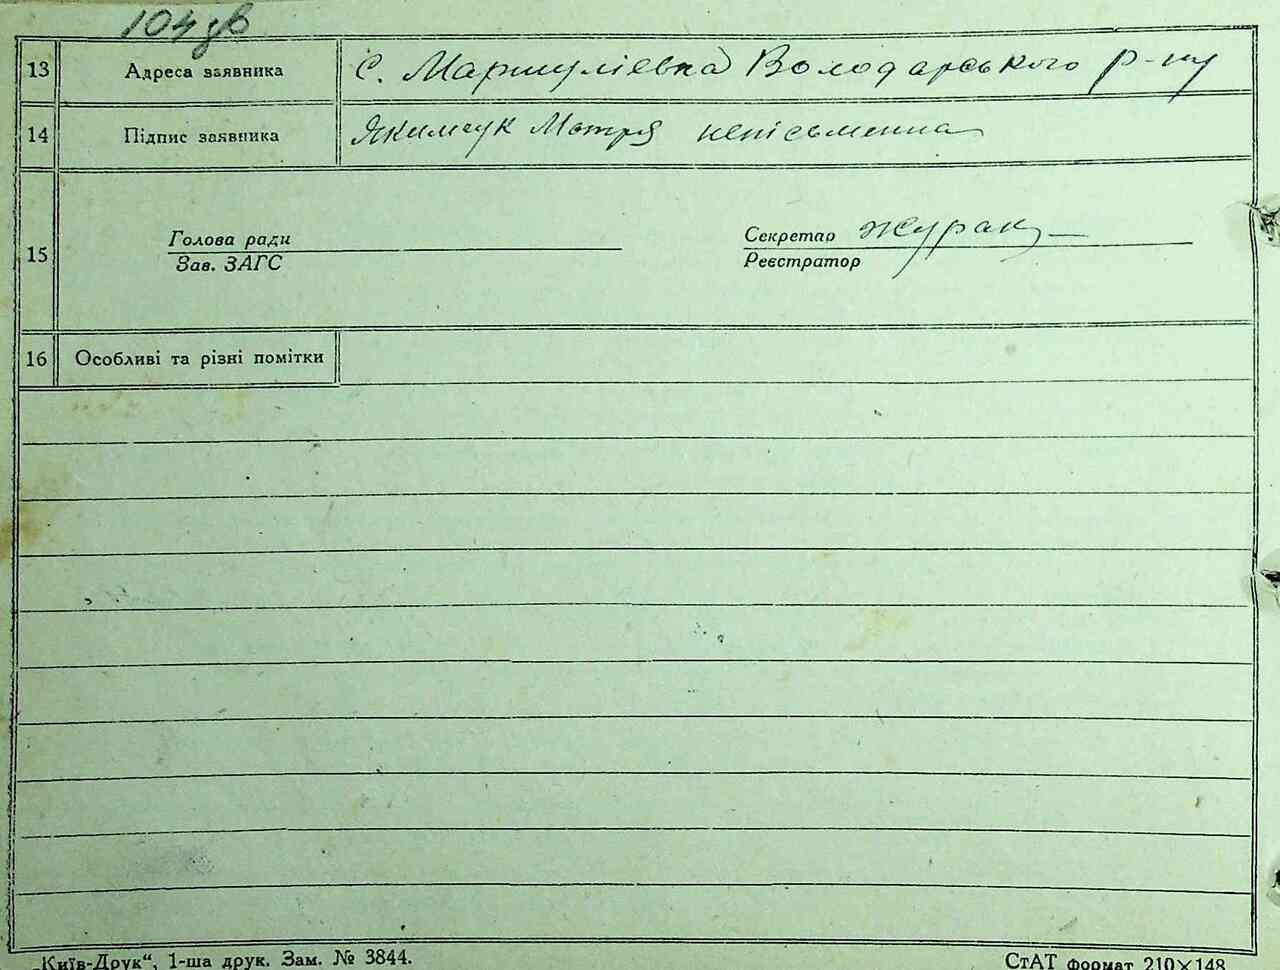 104 зв
13 Адреса заявника С. Маршулієвка Володарського р-ну
14 Підпис заявника Якимчук Мотря неписьменна
15 Голова ради
Зав. ЗАГС
Секретар Журак
Реєстратор
16 Особливі та різні помітки
„Київ-Друк“, 1-ша друк. Зам. № 3844.
СтАТ формат 210×148